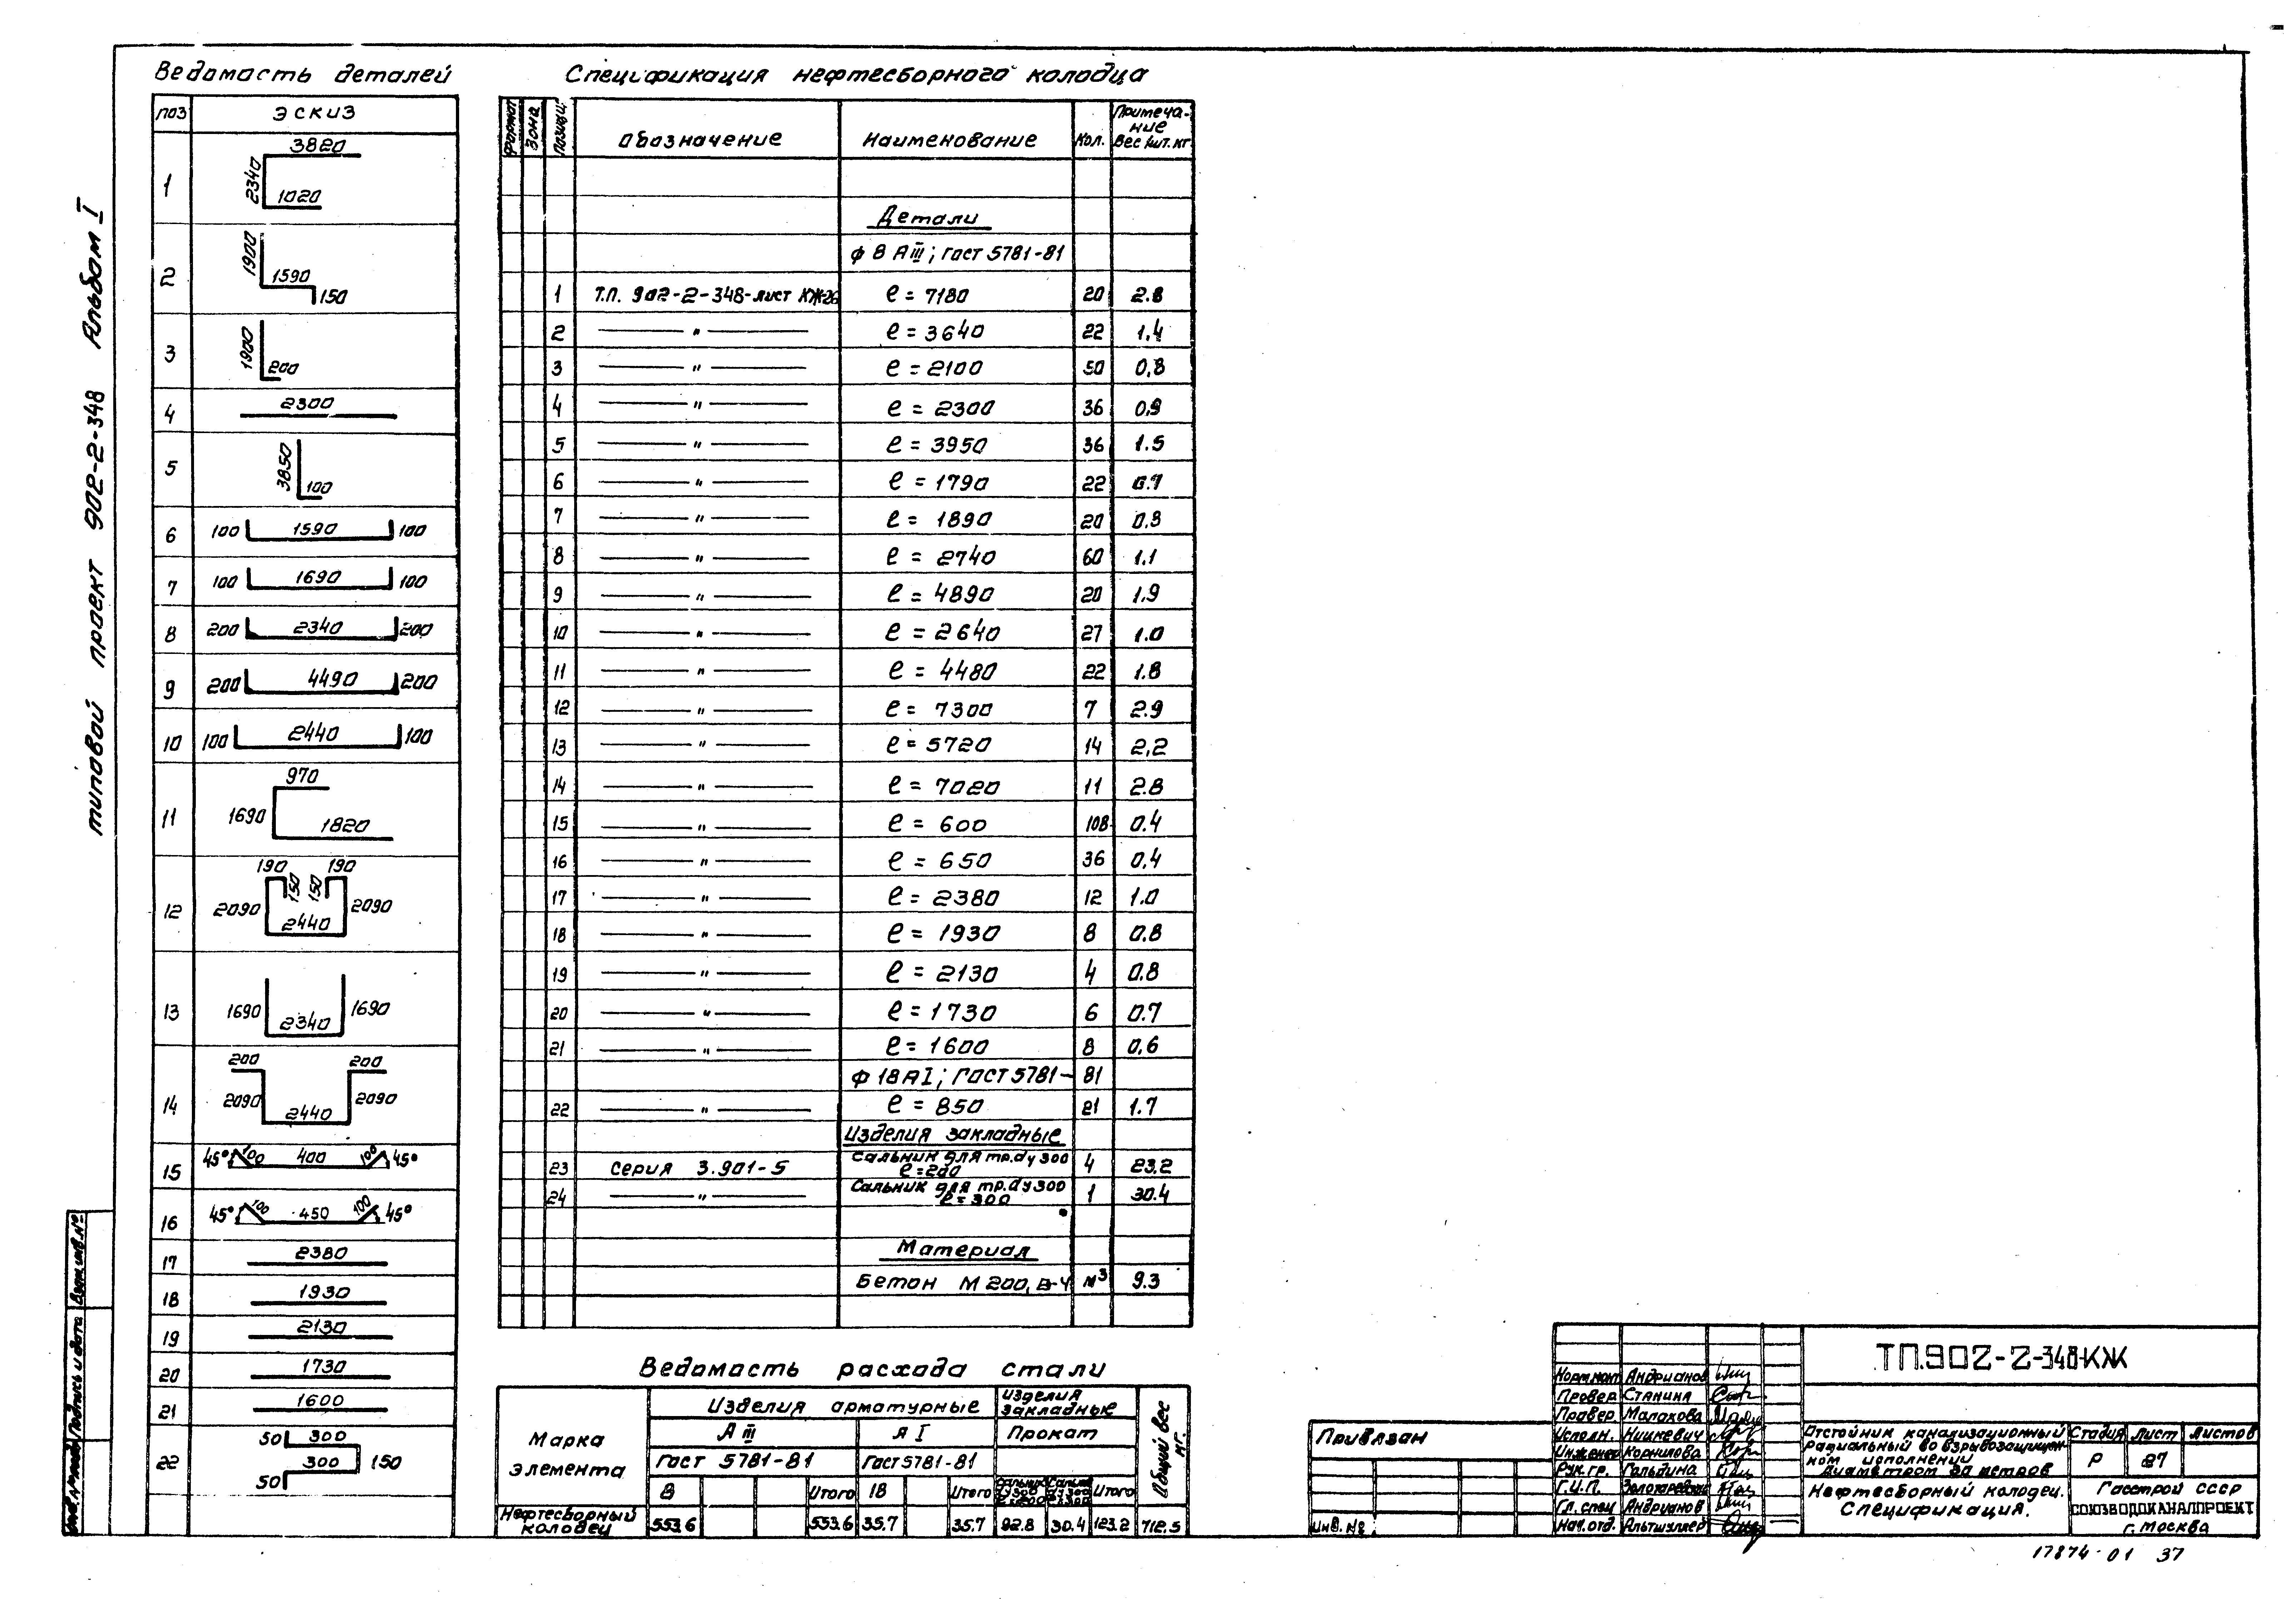 Типовой проект 902-2-348 Альбом I
Ведомость деталей
поз эскиз
1 3820 2340 1020
2 1900 1590 150
3 1900 200
4 2300
5 3850 100
6 100 1590 100
7 100 1690 100
8 200 2340 200
9 200 4490 200
10 100 2440 100
11 970 1690 1820
12 190 190 150 150 2090 2090 2440
13 1690 1690 2340
14 200 200 2090 2090 2440
15 45° 100 400 100 45°
16 45° 100 450 100 45°
17 2380
18 1930
19 2130
20 1730
21 1600
22 50 300 300 150 50
Спецификация нефтесборного колодца
Формат Зона Позиц. Обозначение Наименование Кол. Примечание вес 1шт. кг
Детали
ф 8 А III; гост 5781-81
1 Т.П. 902-2-348-лист КЖ-26 ℓ = 7180 20 2.8
2 — " — ℓ = 3640 22 1.4
3 — " — ℓ = 2100 50 0,8
4 — " — ℓ = 2300 36 0.9
5 — " — ℓ = 3950 36 1.5
6 — " — ℓ = 1790 22 0.7
7 — " — ℓ = 1890 20 0.8
8 — " — ℓ = 2740 60 1.1
9 — " — ℓ = 4890 20 1.9
10 — " — ℓ = 2640 27 1.0
11 — " — ℓ = 4480 22 1.8
12 — " — ℓ = 7300 7 2.9
13 — " — ℓ = 5720 14 2,2
14 — " — ℓ = 7020 11 2.8
15 — " — ℓ = 600 108 0.4
16 — " — ℓ = 650 36 0,4
17 — " — ℓ = 2380 12 1.0
18 — " — ℓ = 1930 8 0.8
19 — " — ℓ = 2130 4 0.8
20 — " — ℓ = 1730 6 0.7
21 — " — ℓ = 1600 8 0,6
ф 18 А I; гост 5781-81
22 — " — ℓ = 850 21 1.7
Изделия закладные
23 Серия 3.901-5 Сальник для тр. dу 300 ℓ=200 4 23.2
24 — " — Сальник для тр. dу 300 ℓ=300 1 30.4
Материал
Бетон М 200, В-4 м³ 9.3
Ведомость расхода стали
Марка элемента Изделия арматурные Изделия закладные Общий вес кг.
А III А I Прокат
Гост 5781-81 Гост 5781-81
8 Итого 18 Итого Сальник dу300 ℓ=200 Сальник dу300 ℓ=300 Итого
Нефтесборный колодец 553.6 553.6 35.7 35.7 92.8 30.4 123.2 712.5
Привязан
Инв. №
Норм.конт Андрианов
Провер Станина
Провер Малахова
Исполн. Нишкевич
Инженер Корнилова
Рук. гр. Гольдина
Г.И.П.
Гл. спец Андрианов
Нач. отд. Альтшуллер
ТП.902-2-348-КЖ
Отстойник канализационный радиальный во взрывозащищенном исполнении диаметром метров
Стадия Лист Листов
Р 27
Нефтесборный колодец. Спецификация.
Госстрой СССР
СОЮЗВОДОКАНАЛПРОЕКТ
г. Москва
17874-01 37
Инв. № подл. Подпись и дата Взам. инв. №